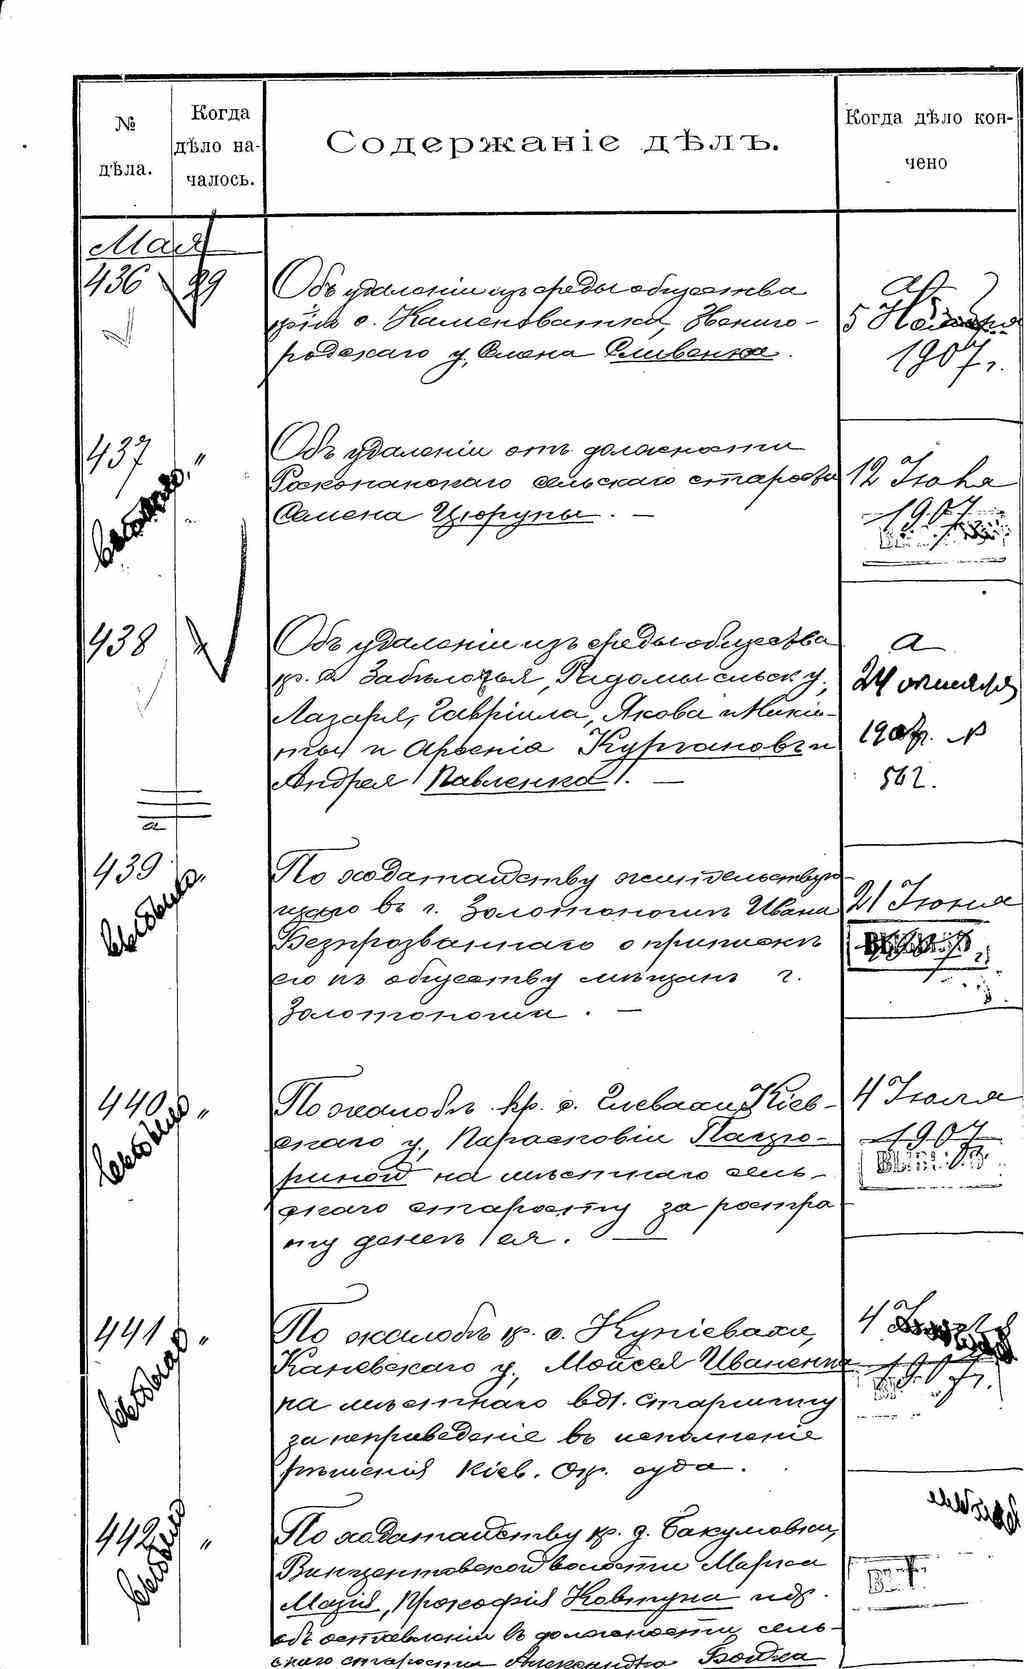 № дѣла.
Когда дѣло началось.
Содержаніе дѣлъ.
Когда дѣло кончено
Мая
436 29
Объ удаленіи изъ среды общества
кр-ъ с. Каменоватки, Звениго-
родскаго у, Семена Сливенка.
5
1907 г.
437 "
выбыло
Объ удаленіи отъ должности
Росконанскаго сельскаго старосты
Семена Цюрупы. —
12 Іюня
1907
438 "
Объ удаленіи изъ среды общества
кр. с. Забѣлочья, Радомысльск у,
Лазаря, Гавріила, Якова и Аникі-
ты и Арсенія Кургановъ и
Андрея Павленка. —
а
24 октября
1907г. №
562.
а
439 "
выбыло
По ходатайству жительствую-
щаго въ г. Золотоношѣ Ивана
Безпрозваннаго о припискѣ
его къ обществу мѣщанъ г.
Золотоноши. —
21 Іюня
1907 г.
440 "
выбыло
По жалобѣ кр. с. Глевахи, Кіев-
скаго у, Парасковіи Панзю-
риной на мѣстнаго сель-
скаго старосту за растра-
ту денегъ ея. —
4 Іюля
1907 г.
ВЫБЫЛО
441 "
выбыло
По жалобѣ кр. с. Купіевахи,
Каневскаго у, Мойсея Иваненка
на мѣстнаго вол. старшину
за неприведеніе въ исполненіе
рѣшенія Кіев. Окр. суда.
4
1907 г.
442 "
выбыло
По ходатайству кр. д. Бакумовки,
Винцентовской волости Марка
Мазія, Прокофія Ковтуна и др.
объ оставленіи въ должности сель-
скаго старости Александра Бойка
выбыло